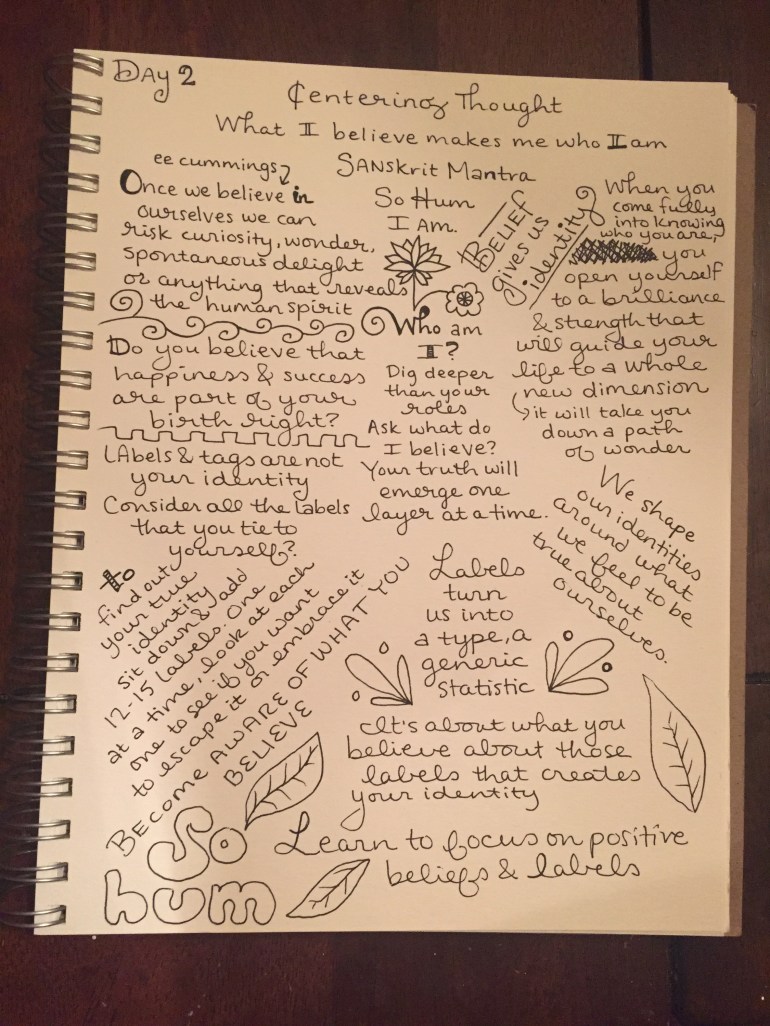 DAY 2
Centering Thought
What I believe makes me who I am
ee cummings
Once we believe in
ourselves we can
risk curiosity, wonder,
spontaneous delight
or anything that reveals
the human spirit
Do you believe that
happiness & success
are part of your
birth right?
LAbels & tags are not
your identity
Consider all the labels
that you tie to
yourself?
to
find out
your true
identity
sit down & add
12-15 labels. One
at a time, look at each
one to see if you want
to escape it or embrace it
BECOME AWARE OF WHAT YOU
BELIEVE
So
hum
SANSkrit Mantra
So Hum
I Am.
Who am
I?
Dig deeper
than your
roles
Ask what do
I believe?
Your truth will
emerge one
layer at a time.
BELIEF
gives us
identity
When you
come fully
into knowing
who you are,
you
open yourself
to a brilliance
& strength that
will guide your
life to a whole
new dimension
it will take you
down a path
of wonder
We shape
our identities
around what
we feel to be
true about
ourselves.
Labels
turn
us into
a type, a
generic
statistic
It's about what you
believe about those
labels that creates
your identity
Learn to focus on positive
beliefs & labels